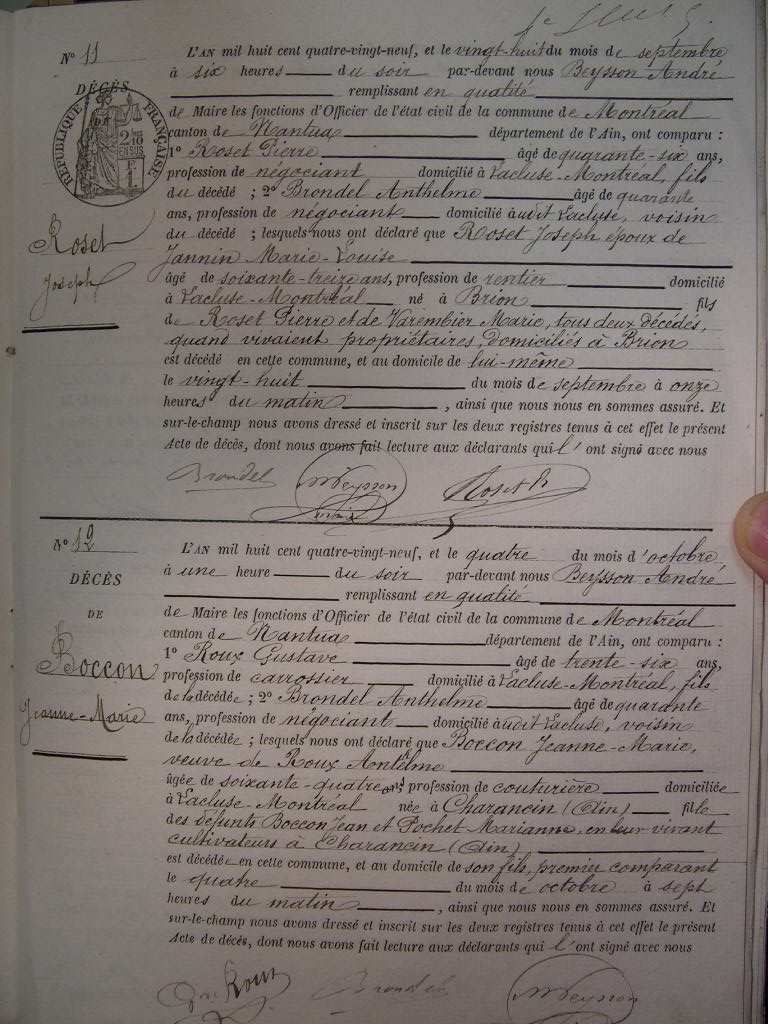 N° 11
DÉCÈS
RÉPUBLIQUE FRANÇAISE
Roset
Joseph
L'AN mil huit cent quatre-vingt-neuf, et le vingt-huit du mois de septembre
à six heures du soir par-devant nous Beysson André
remplissant en qualité
de Maire les fonctions d'Officier de l'état civil de la commune de Montréal
canton de Nantua département de l'Ain, ont comparu :
1° Roset Pierre âgé de quarante-six ans,
profession de négociant domicilié à Lacluse-Montréal, fils
du décédé ; 2° Brondel Anthelme âgé de quarante
ans, profession de négociant domicilié audit Lacluse, voisin
du décédé ; lesquels nous ont déclaré que Roset Joseph époux de
Jannin Marie-Louise
âgé de soixante-treize ans, profession de rentier domicilié
à Lacluse-Montréal né à Brion fils
de Roset Pierre et de Varembier Marie, tous deux décédés,
quand vivaient propriétaires, domiciliés à Brion
est décédé en cette commune, et au domicile de lui-même
le vingt-huit du mois de septembre à onze
heures du matin , ainsi que nous nous en sommes assuré. Et
sur-le-champ nous avons dressé et inscrit sur les deux registres tenus à cet effet le présent
Acte de décès, dont nous avons fait lecture aux déclarants qui l' ont signé avec nous
Brondel Beysson Roset P.
N° 12
DÉCÈS
DE
Boccon
Jeanne-Marie
L'AN mil huit cent quatre-vingt-neuf, et le quatre du mois d'octobre
à une heure du soir par-devant nous Beysson André
remplissant en qualité
de Maire les fonctions d'Officier de l'état civil de la commune de Montréal
canton de Nantua département de l'Ain, ont comparu :
1° Roux Gustave âgé de trente-six ans,
profession de carrossier domicilié à Lacluse-Montréal, fils
de la décédée ; 2° Brondel Anthelme âgé de quarante
ans, profession de négociant domicilié audit Lacluse, voisin
de la décédée ; lesquels nous ont déclaré que Boccon Jeanne-Marie,
veuve de Roux Antelme
âgée de soixante-quatre ans profession de couturière domiciliée
à Lacluse-Montréal née à Charancin (Ain) fille
des défunts Boccon Jean et Pochet Marianne, en leur vivant
cultivateurs à Charancin (Ain),
est décédée en cette commune, et au domicile de son fils, premier comparant
le quatre du mois de octobre à sept
heures du matin , ainsi que nous nous en sommes assuré. Et
sur-le-champ nous avons dressé et inscrit sur les deux registres tenus à cet effet le présent
Acte de décès, dont nous avons fait lecture aux déclarants qui l' ont signé avec nous
Roux Brondel Beysson